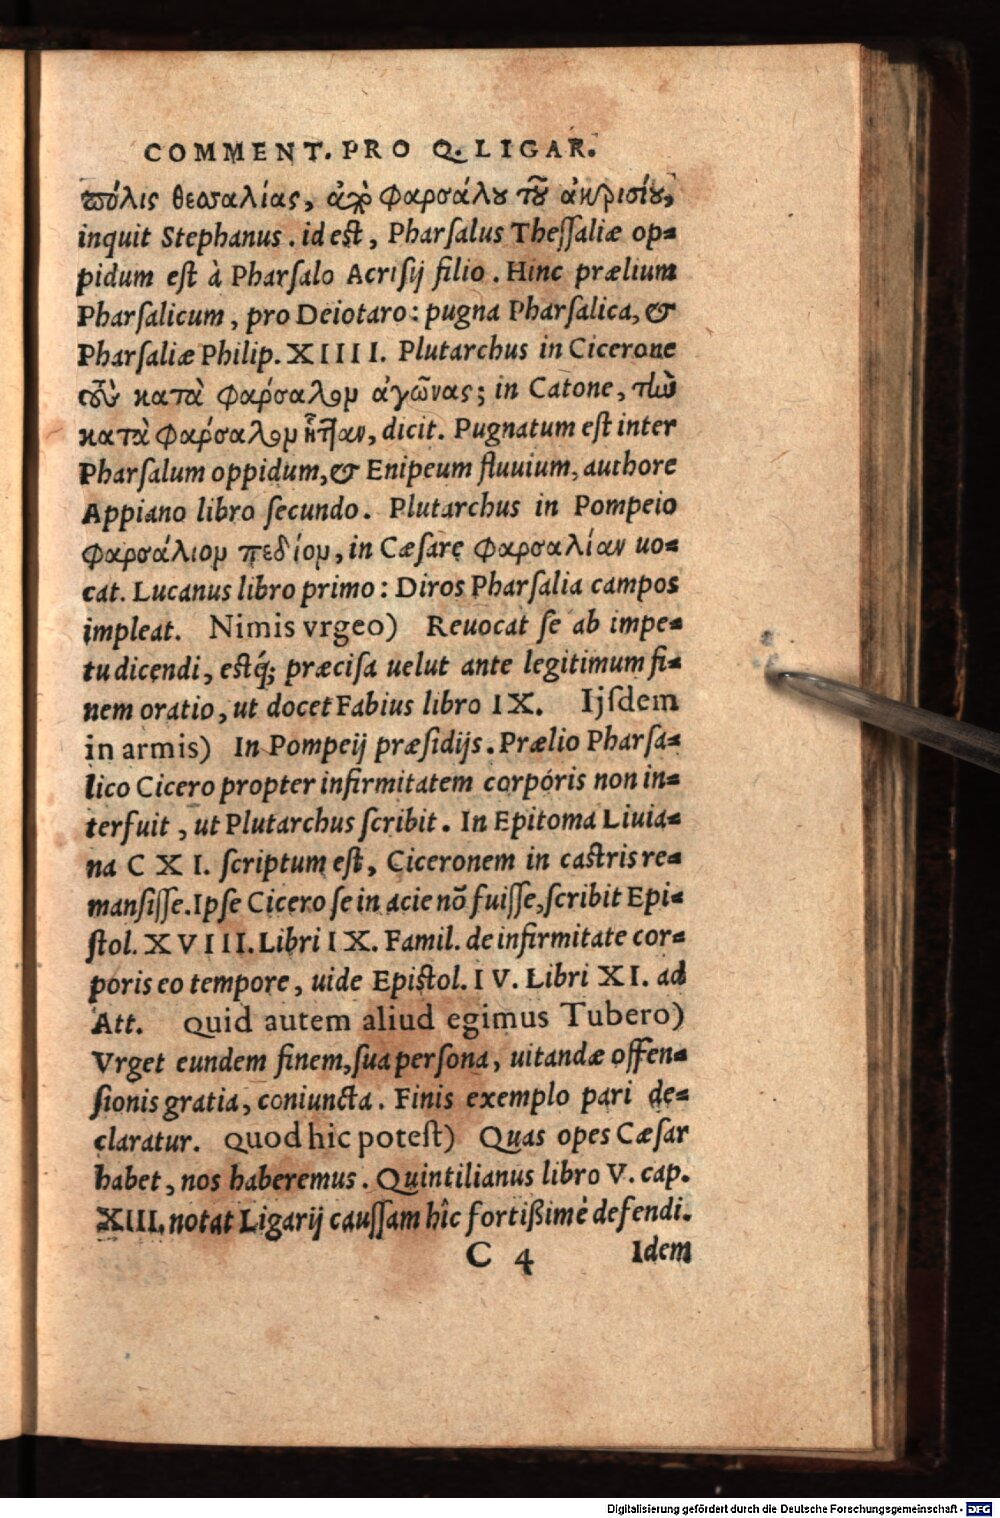 COMMENT. PRO Q. LIGAR.
πόλις θεσσαλίας, ἀπὸ Φαρσάλου τοῦ ἀκρισίου,
inquit Stephanus. id est, Pharsalus Thessaliæ op-
pidum est à Pharsalo Acrisij filio. Hinc prælium
Pharsalicum, pro Deiotaro: pugna Pharsalica, &
Pharsaliæ Philip. XIIII. Plutarchus in Cicerone
τοὺς κατὰ φαρσαλον ἀγῶνας; in Catone, τὼ
κατὰ Φαρσαλον ἧτταν, dicit. Pugnatum est inter
Pharsalum oppidum, & Enipeum fluuium, authore
Appiano libro secundo. Plutarchus in Pompeio
φαρσάλιον πεδίον, in Cæsare φαρσαλίαν uo-
cat. Lucanus libro primo: Diros Pharsalia campos
impleat. Nimis vrgeo) Reuocat se ab impe-
tu dicendi, estq́; præcisa uelut ante legitimum fi-
nem oratio, ut docet Fabius libro IX. Ijsdem
in armis) In Pompeij præsidijs. Prælio Pharsa-
lico Cicero propter infirmitatem corporis non in-
terfuit, ut Plutarchus scribit. In Epitoma Liuia-
na CXI. scriptum est, Ciceronem in castris re-
mansisse. Ipse Cicero se in acie nõ fuisse, scribit Epi-
stol. XVIII. Libri IX. Famil. de infirmitate cor-
poris eo tempore, uide Epistol. IV. Libri XI. ad
Att. Quid autem aliud egimus Tubero)
Vrget eundem finem, sua persona, uitandæ offen-
sionis gratia, coniuncta. Finis exemplo pari de-
claratur. Quod hic potest) Quas opes Cæsar
habet, nos haberemus. Quintilianus libro V. cap.
XIII. notat Ligarij caussam hîc fortißimè defendi.
C 4 Idem
Digitalisierung gefördert durch die Deutsche Forschungsgemeinschaft - DFG